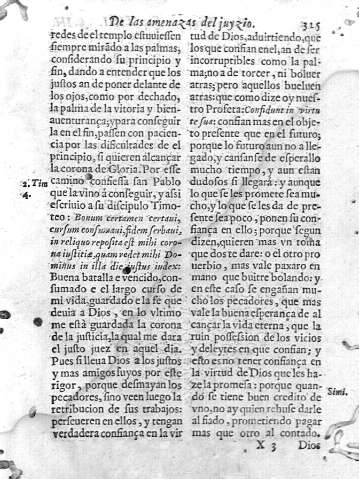 De las amenazas del juyzio. 325
redes del templo estuuiessen
siempre mirãdo a las palmas,
considerando su principio y
fin, dando a entender que los
justos an de poner delante de
los ojos, como por dechado,
la palma de la vitoria y bien-
auenturança; y para conseguir
la en el fin, passen con pacien-
cia por las dificultades de el
principio, si quieren alcançar
la corona de Gloria. Por esse
camino confiessa san Pablo
que la vino â conseguir, y assi
escriuio a su discipulo Timo-
teo: Bonum certamen certaui,
cursum consumaui, fidem serbaui,
in reliquo reposita est mihi coro-
na iustitiæ, quam redet mihi Do-
minus in illa die justus index:
Buena batalla e vencido, con-
sumado e el largo curso de
mi vida, guardado e la fe que
deuia a Dios, en lo vltimo
me està guardada la corona
de la justicia, la qual me dara
el justo juez en aquel dia.
Pues si lleua Dios a los justos
y mas amigos suyos por este
rigor, porque desmayan los
pecadores, sino veen luego la
retribucion de sus trabajos:
perseueren en ellos, y tengan
verdadera confiança en la vir
2. Tim
4.
tud de Dios, aduirtiendo, que
los que confian en el, an de ser
incorruptibles como la pal-
ma; no a de torcer, ni boluer
atras; pero aquellos bueluen
atras: que como dize oy nues-
tro Profeta: Confidunt in virtu
te sua: confian mas en el obje-
to presente que en el futuro;
porque lo futuro aun no a lle-
gado, y cansanse de esperallo
mucho tiempo, y aun estan
dudosos si llegarà: y aunque
lo que se les promete sea mu-
cho, y lo que se les da de pre-
sente sea poco, ponen su con-
fiança en ello; porque segun
dizen, quieren mas vn toma
que dos te dare: o el otro pro
uerbio, mas vale paxaro en
mano que buitre bolando: y
en este caso se engañan mu-
cho los pecadores, que mas
vale la buena esperança de al
cançar la vida eterna, que la
ruin possession de los vicios
y deleytes en que confian; y
esto es no tener confiança en
la virtud de Dios que les ha-
ze la promesa: porque quan-
dó se tiene buen credito de
vno, no ay quien rehuse darle
al fiado, prometiendo pagar
mas que otro al contado.
Simi.
X 3 Dios